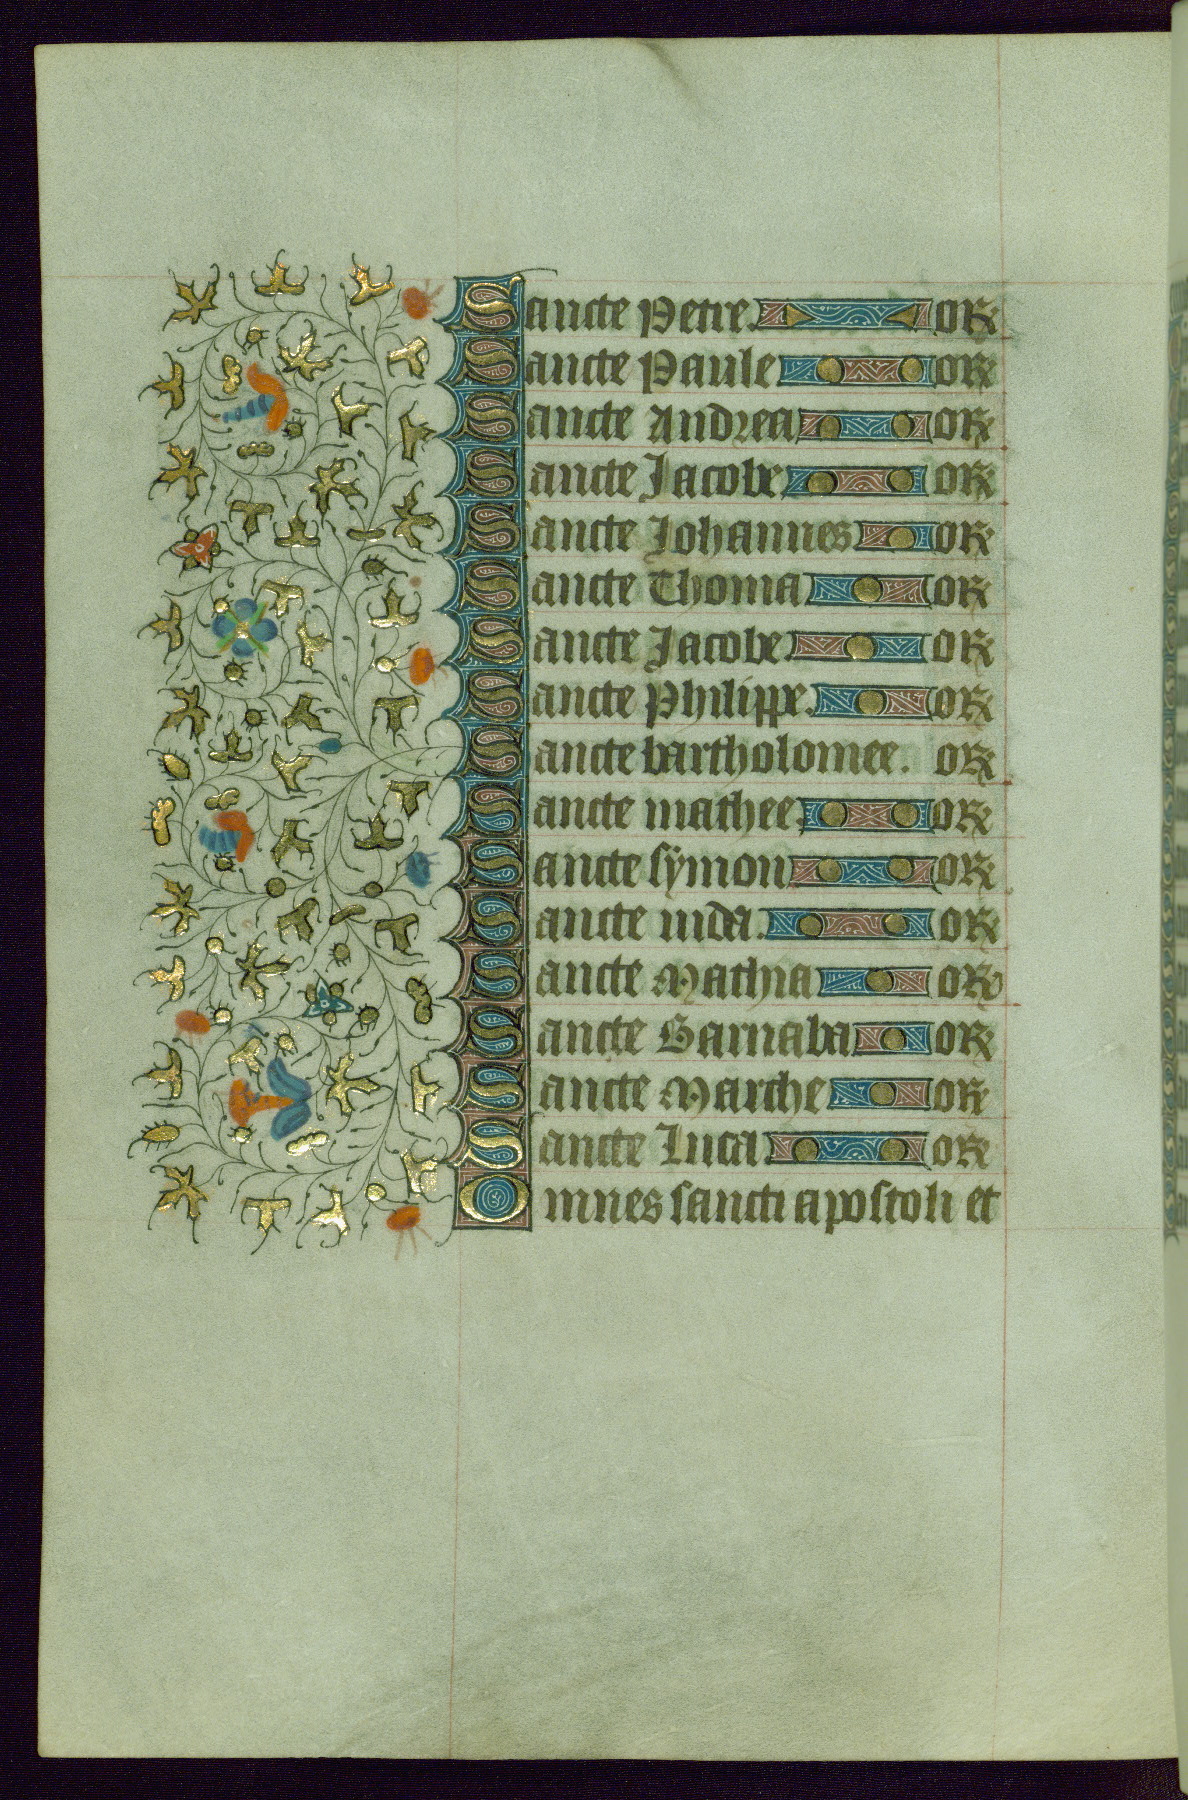 Sancte Petre. or
Sancte Paule or
Sancte Andrea or
Sancte Jacobe or
Sancte Johannes or
Sancte Thoma or
Sancte Jacobe or
Sancte Philippe. or
Sancte bartholomee. or
Sancte mathee. or
Sancte sẏmon or
Sancte iuda. or
Sancte Mathia or
Sancte Barnaba or
Sancte Marche or
Sancte Luca or
Omnes sancti apostoli et